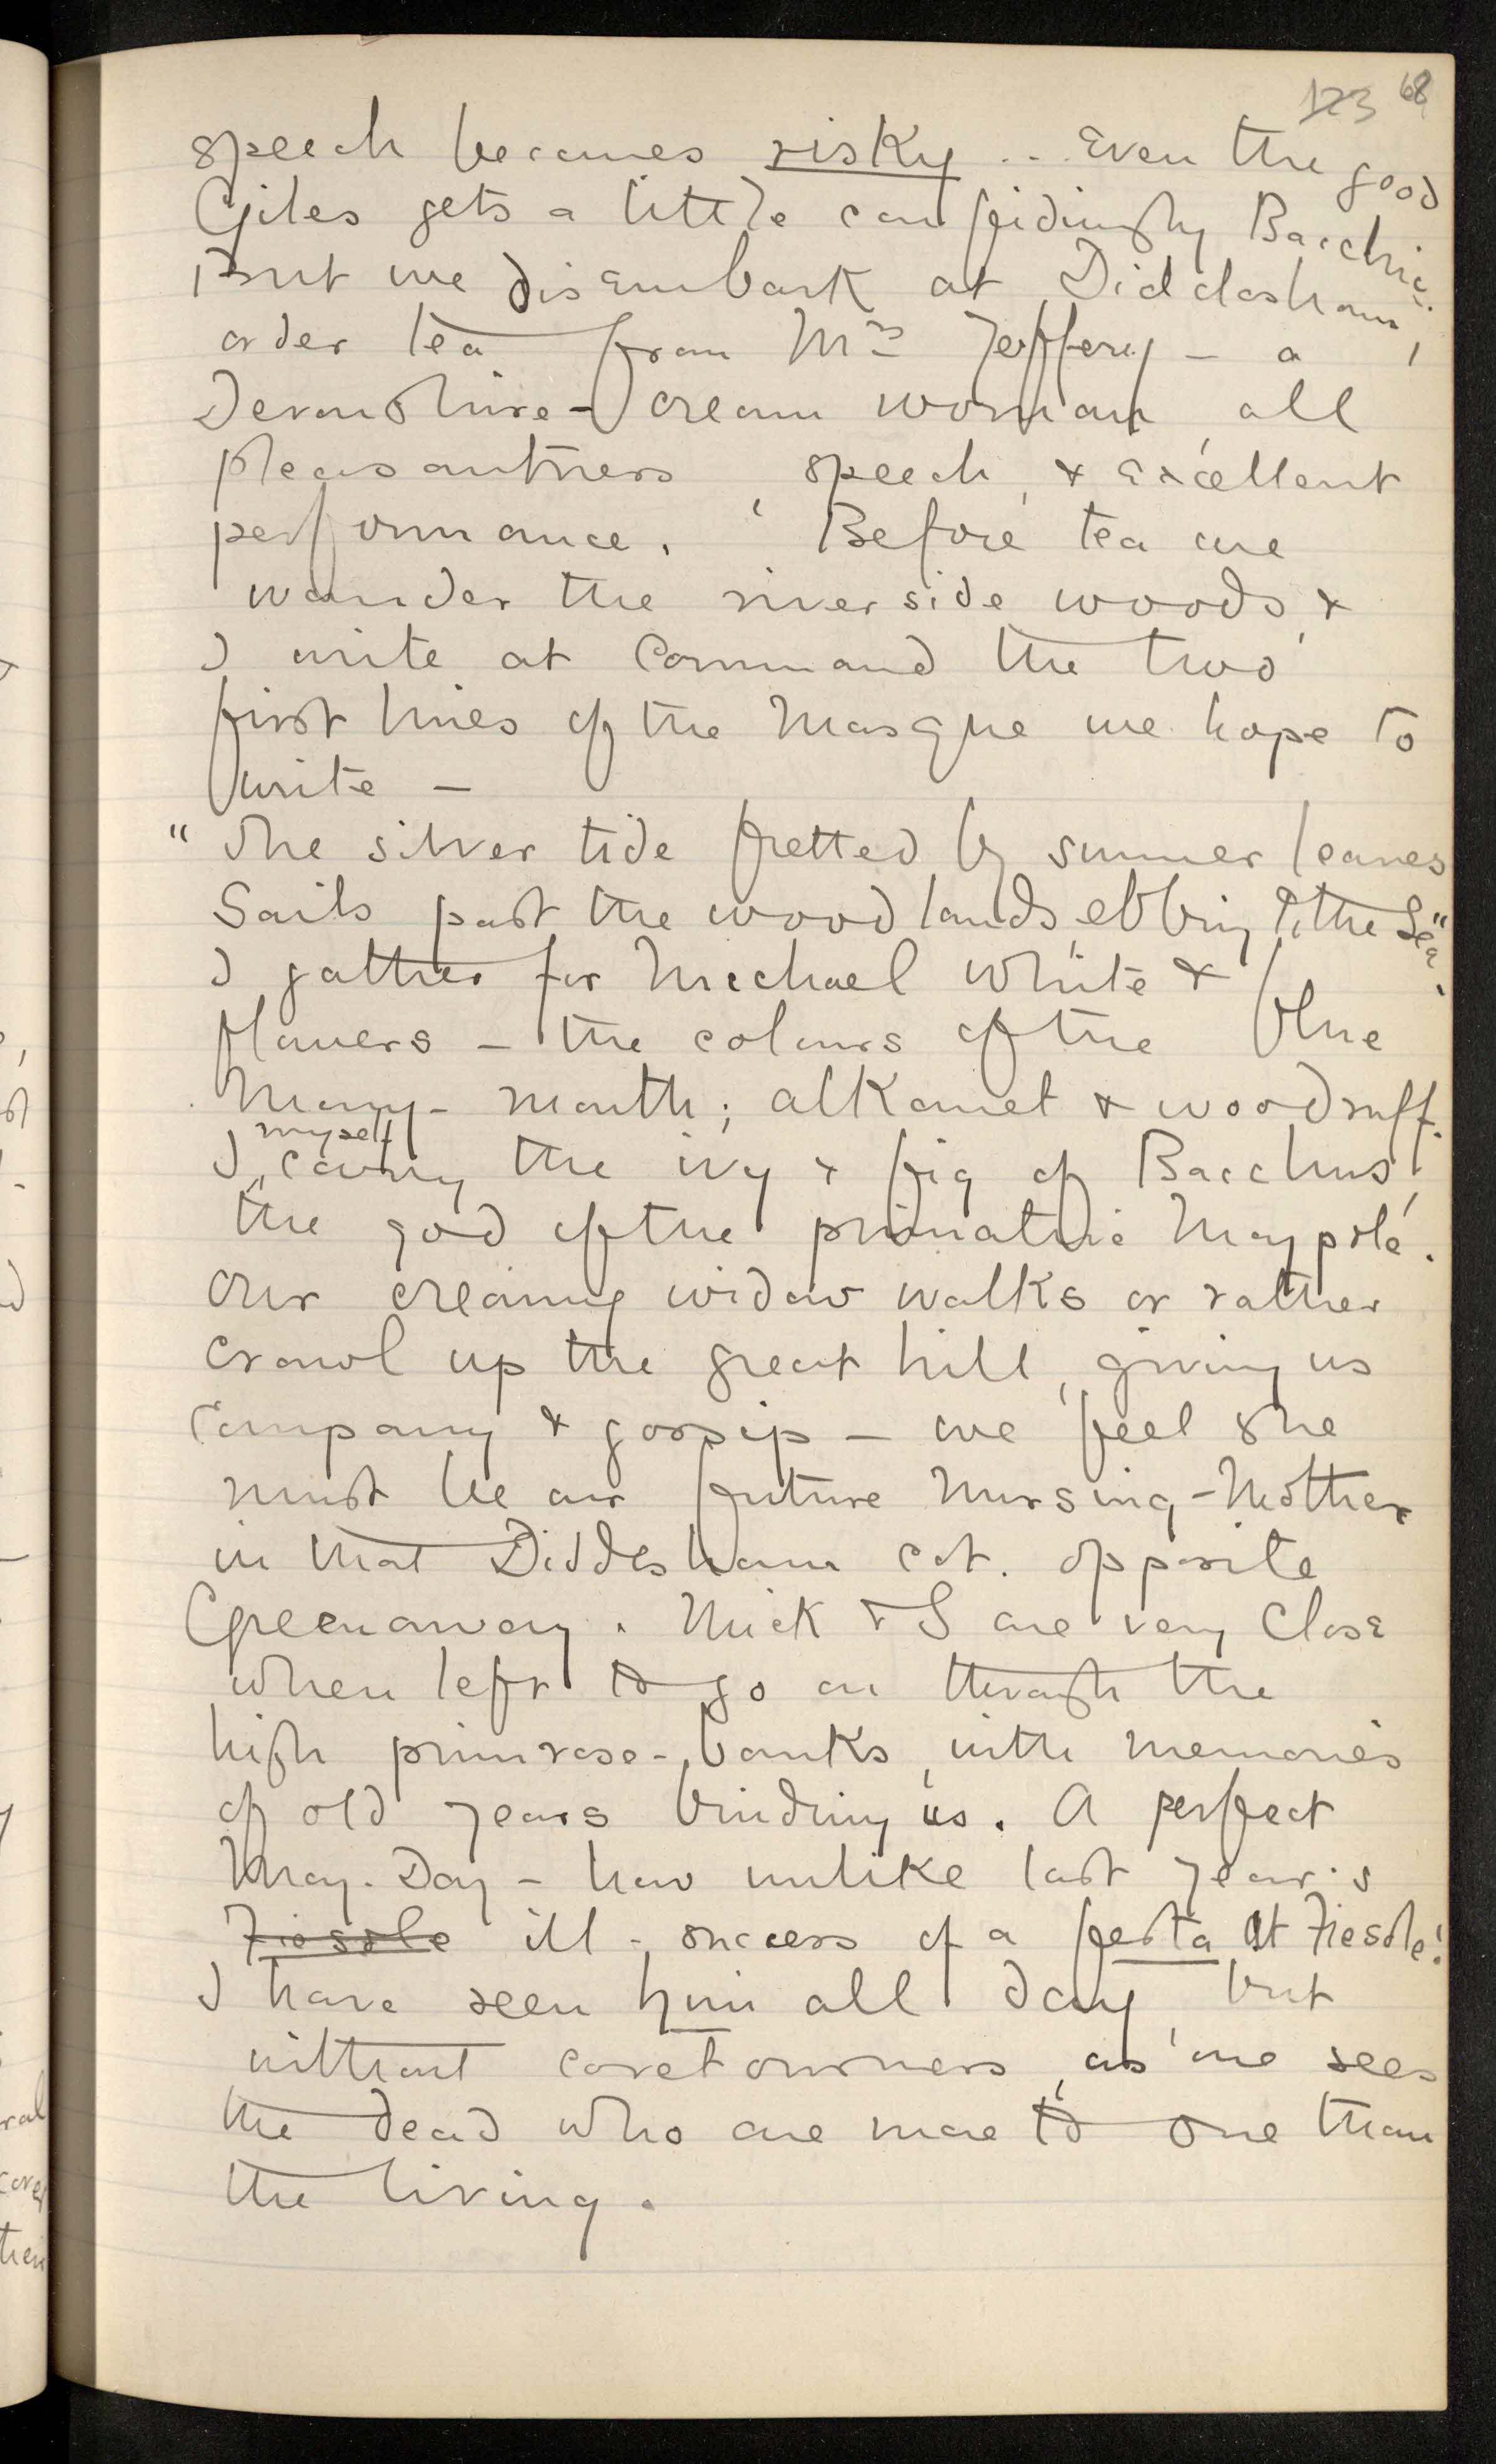 123 68
speech becomes risky ... Even the good
Giles gets a little confidingly Bacchic.
But we disembark at Diddasham,
order tea from Mrs Jeffery – a
Devonshire-cream woman, all
pleasantness, speech, & excellent
performance. Before tea we
wander the riverside woods, &
I write at command the two
first lines of the Masque we hope to
write –
"The silver tide fretted by summer leaves
Sails past the woodlands, ebbing to the Sea".
I gather for Michael white &
flowers – the colours of the blue
Mary-month; alkanet & woodruff.
I myself carry the ivy & fig of Bacchus,
the god of the Maypole.
Our creamy widow walks or rather
crawl up the great hill, giving us
company & gossip – we feel she
must be our future Nursing-Mother
in that Diddesham cot. opposite
Greenaway. Mick & I are very close
when left to go on through the
high primrose-banks, with memories
of old years binding us. A perfect
May-Day – how unlike last year's
Fiesole ill-success of a festa at Fiesole!
I have seen him all day, but
without covetousness, as one sees
the dead who are more to one than
the living.